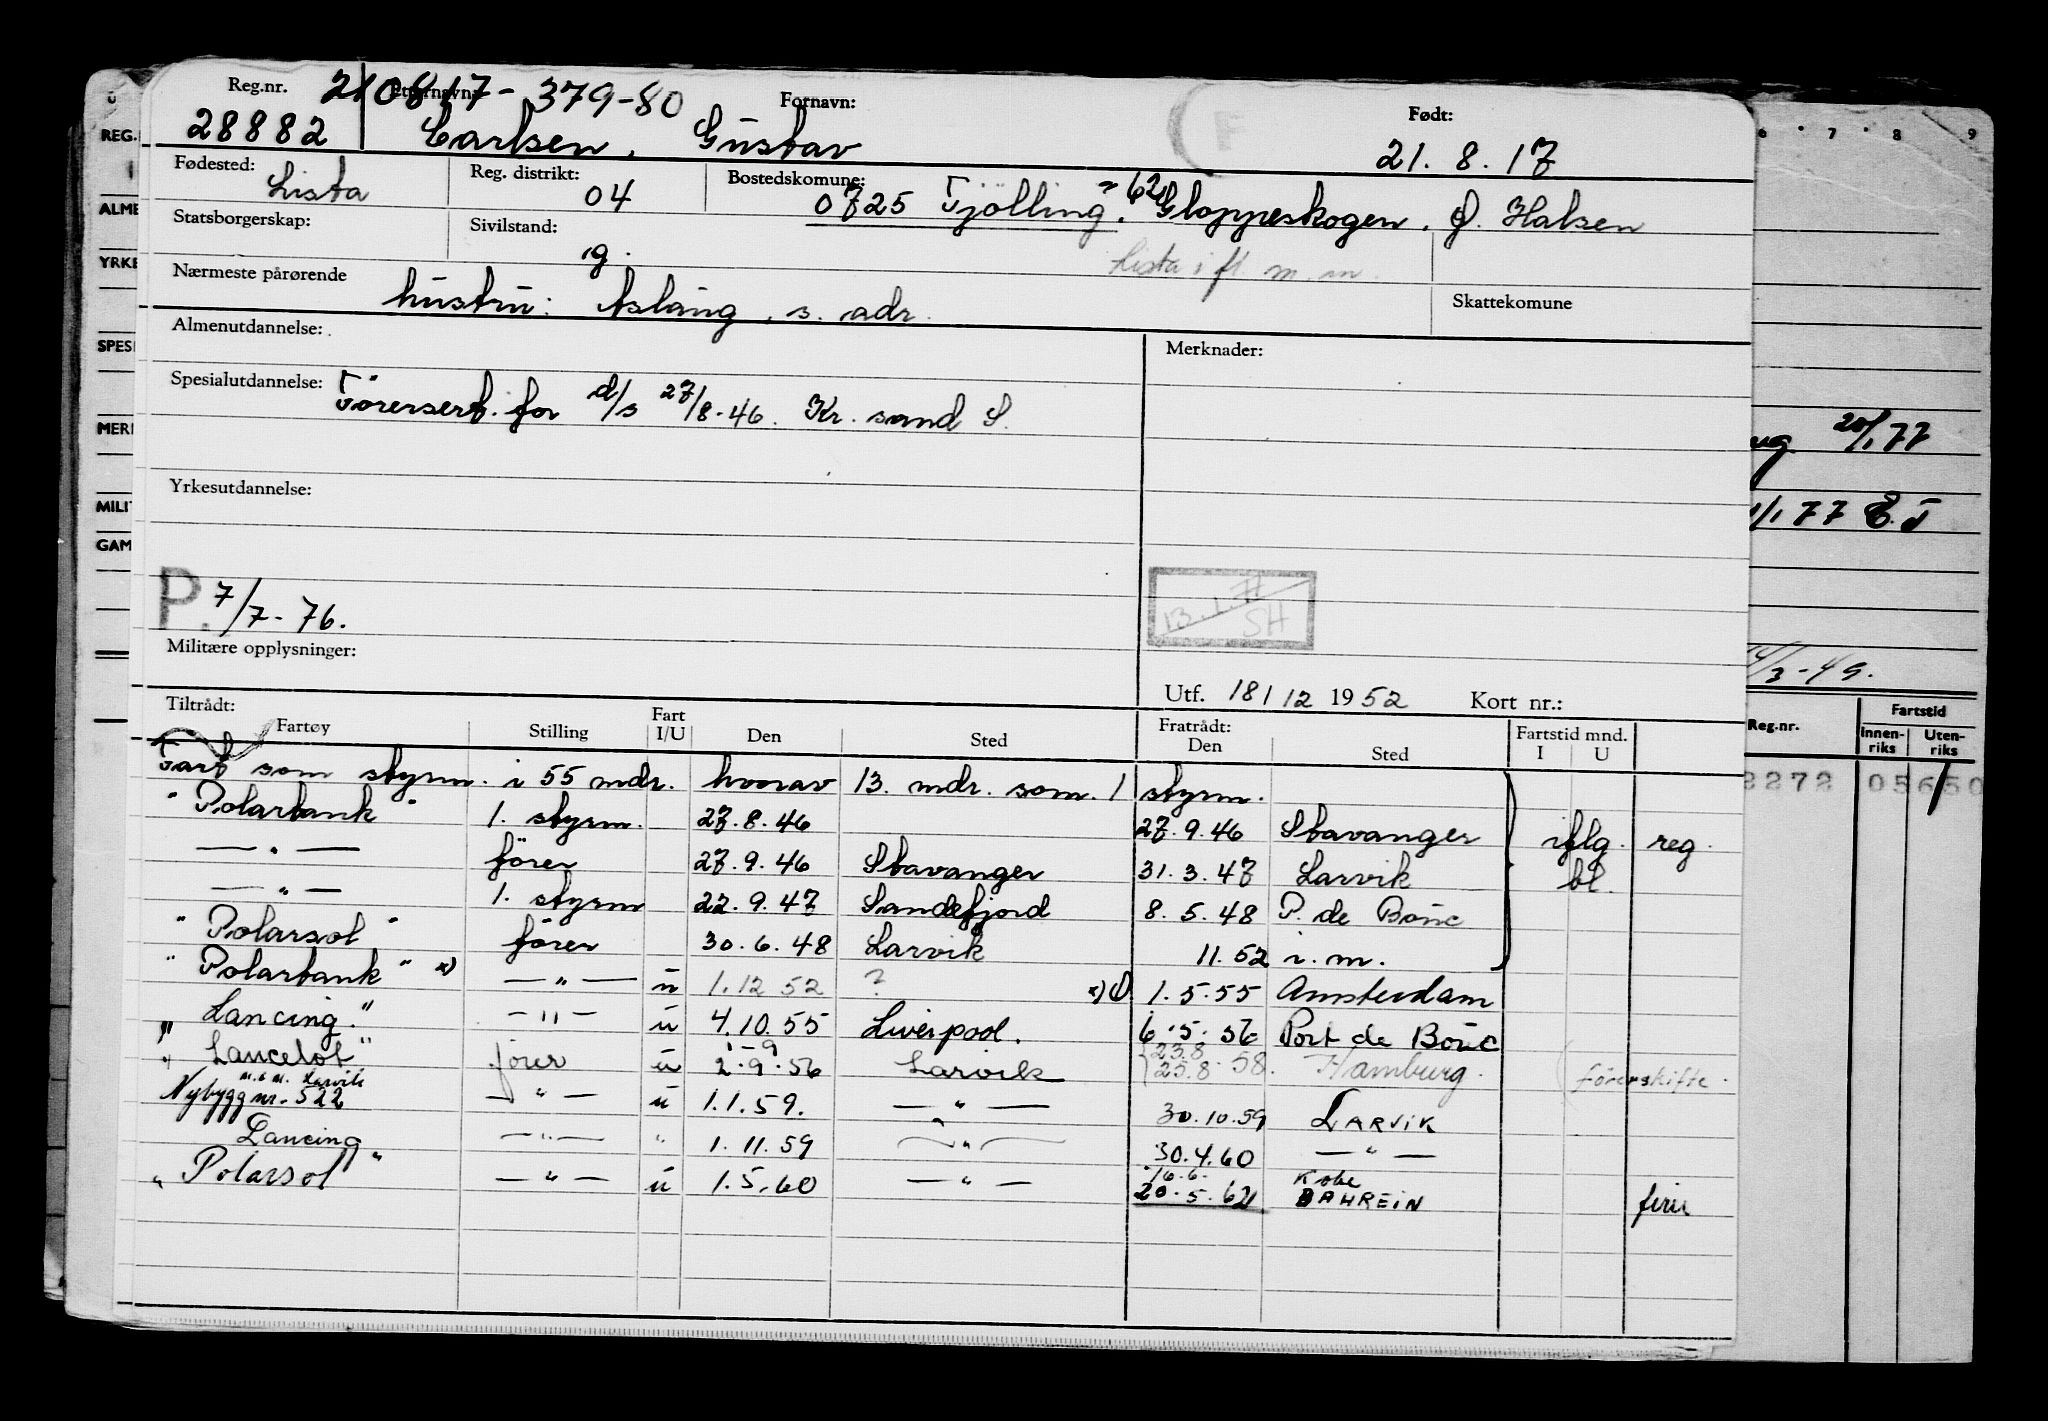 Reg.nr. 210817-379-80 Fornavn: Født:
28882 Carlsen, Gustav 21.8.17
Fødested: Lista Reg. distrikt: 04 Bostedskommune: 0725 Tjölling, Gloppeskogen, Ø. Halsen
Statsborgerskap: Sivilstand: g. Lista ifl. m.m.
Nærmeste pårørende hustru: Aslaug, s. adr. Skattekomune
Almenutdannelse: Merknader:
Spesialutdannelse: Førersert. for d/s 27/8-46. Kr. sand S.
Yrkesutdannelse:
P. 7/7-76. 13.1.71 SH
Militære opplysninger:
Utf. 18/12 1952 Kort nr.:
Tiltrådt: Fratrådt:
Fartøy Stilling Fart I/U Den Sted Den Sted Fartstid mnd. I U
Fart som styrm. i 55 mdr. hvorav 13. mdr. som 1 styrm.
"Polartank" 1. styrm. 27.8.46 27.9.46 Stavanger iflg. reg.
— " — fører 27.9.46 Stavanger 31.3.47 Larvik bl.
— " — 1. styrm 22.9.47 Sandefjord 8.5.48 P. de Bouc
"Polarsol" fører 30.6.48 Larvik 11.52 i.m.
"Polartank" x) — " — u 1.12 52 ? x) 1.5.55 Amsterdam
"Lancing" — " — u 4.10.55 Liverpool. 6.5.56 Port de Bouc
"Lancelot" fører u 1-9 2.9.56 Larvik 23.8 25.8.58. Hamburg. førerskifte.
Nybygg nr. 522 m.s.m. Larvik — " — u 1.1.59. — " — 30.10.59 LARVIK
Lancing" — " — " 1.11.59 — " — 30.4.60 — " —
"Polarsol — " — u 1.5.60 — " — 16.6. 20.5.62 Kobe BAHREIN ferie
REG.
ALME
YRKE
SPESI
MERK
MILIT
GAM
6 7 8 9
20/1 77
/1 77 E.T
/3-49.
Reg.nr. Fartstid
Innenriks Utenriks
2272 05650